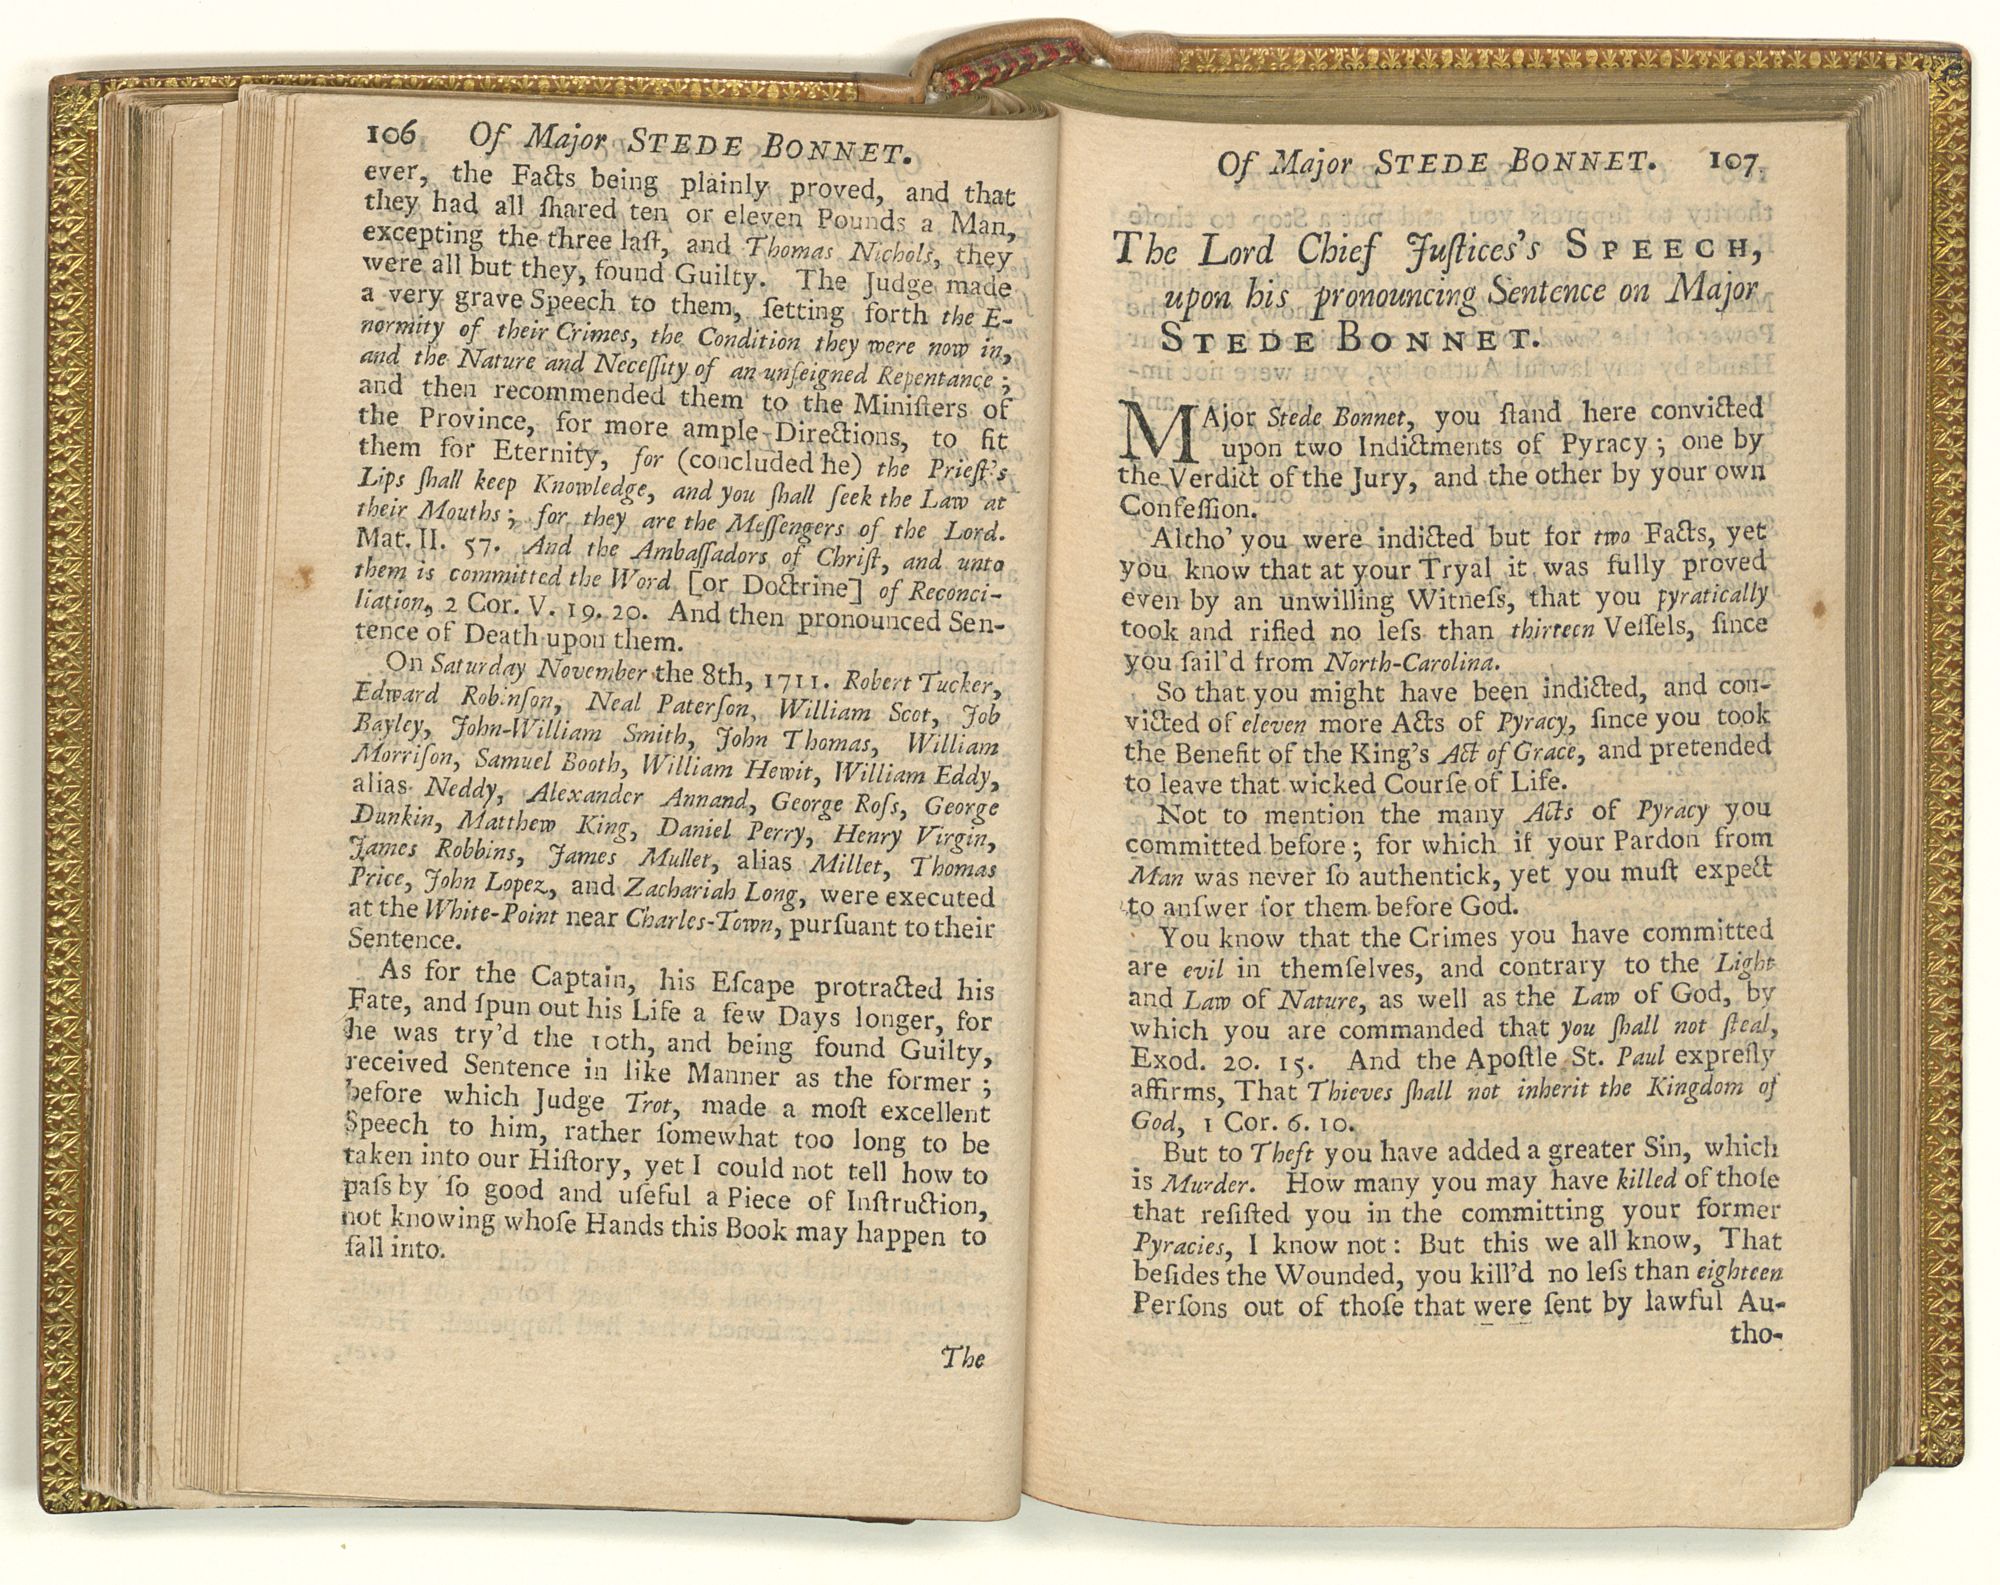 106 Of Major STEDE BONNET.
ever, the Facts being plainly proved, and that
they had all ſhared ten or eleven Pounds a Man,
excepting the three laſt, and Thomas Nichols, they
were all but they, found Guilty. The Judge made
a very grave Speech to them, ſetting forth the E-
normity of their Crimes, the Condition they were now in,
and the Nature and Neceſſity of an unfeigned Repentance;
and then recommended them to the Miniſters of
the Province, for more ample Directions, to fit
them for Eternity, for (concluded he) the Prieſt's
Lips ſhall keep Knowledge, and you ſhall ſeek the Law at
their Mouths; for they are the Meſſengers of the Lord.
Mat. II. 57. And the Ambaſſadors of Chriſt, and unto
them is committed the Word [or Doctrine] of Reconci-
liation, 2 Cor. V. 19. 20. And then pronounced Sen-
tence of Death upon them.
On Saturday November the 8th, 1711. Robert Tucker,
Edward Robinſon, Neal Paterſon, William Scot, Job
Bayley, John-William Smith, John Thomas, William
Morriſon, Samuel Booth, William Hewit, William Eddy,
alias Neddy, Alexander Annand, George Roſs, George
Dunkin, Matthew King, Daniel Perry, Henry Virgin,
James Robbins, James Mullet, alias Millet, Thomas
Price, John Lopez, and Zachariah Long, were executed
at the White-Point near Charles-Town, purſuant to their
Sentence.
As for the Captain, his Eſcape protracted his
Fate, and ſpun out his Life a few Days longer, for
he was try'd the 10th, and being found Guilty,
received Sentence in like Manner as the former;
before which Judge Trot, made a moſt excellent
Speech to him, rather ſomewhat too long to be
taken into our Hiſtory, yet I could not tell how to
paſs by ſo good and uſeful a Piece of Inſtruction,
not knowing whoſe Hands this Book may happen to
fall into.
The
Of Major STEDE BONNET. 107
The Lord Chief Juſtices's SPEECH,
upon his pronouncing Sentence on Major
STEDE BONNET.
MAjor Stede Bonnet, you ſtand here convicted
upon two Indictments of Pyracy; one by
the Verdict of the Jury, and the other by your own
Confeſſion.
Altho' you were indicted but for two Facts, yet
you know that at your Tryal it was fully proved
even by an unwilling Witneſs, that you pyratically
took and rifled no leſs than thirteen Veſſels, ſince
you ſail'd from North-Carolina.
So that you might have been indicted, and con-
victed of eleven more Acts of Pyracy, ſince you took
the Benefit of the King's Act of Grace, and pretended
to leave that wicked Courſe of Life.
Not to mention the many Acts of Pyracy you
committed before; for which if your Pardon from
Man was never ſo authentick, yet you muſt expect
to anſwer for them before God.
You know that the Crimes you have committed
are evil in themſelves, and contrary to the Light
and Law of Nature, as well as the Law of God, by
which you are commanded that you ſhall not ſteal,
Exod. 20. 15. And the Apoſtle St. Paul expreſly
affirms, That Thieves ſhall not inherit the Kingdom of
God, 1 Cor. 6. 10.
But to Theft you have added a greater Sin, which
is Murder. How many you may have killed of thoſe
that reſiſted you in the committing your former
Pyracies, I know not: But this we all know, That
beſides the Wounded, you kill'd no leſs than eighteen
Perſons out of thoſe that were ſent by lawful Au-
tho-